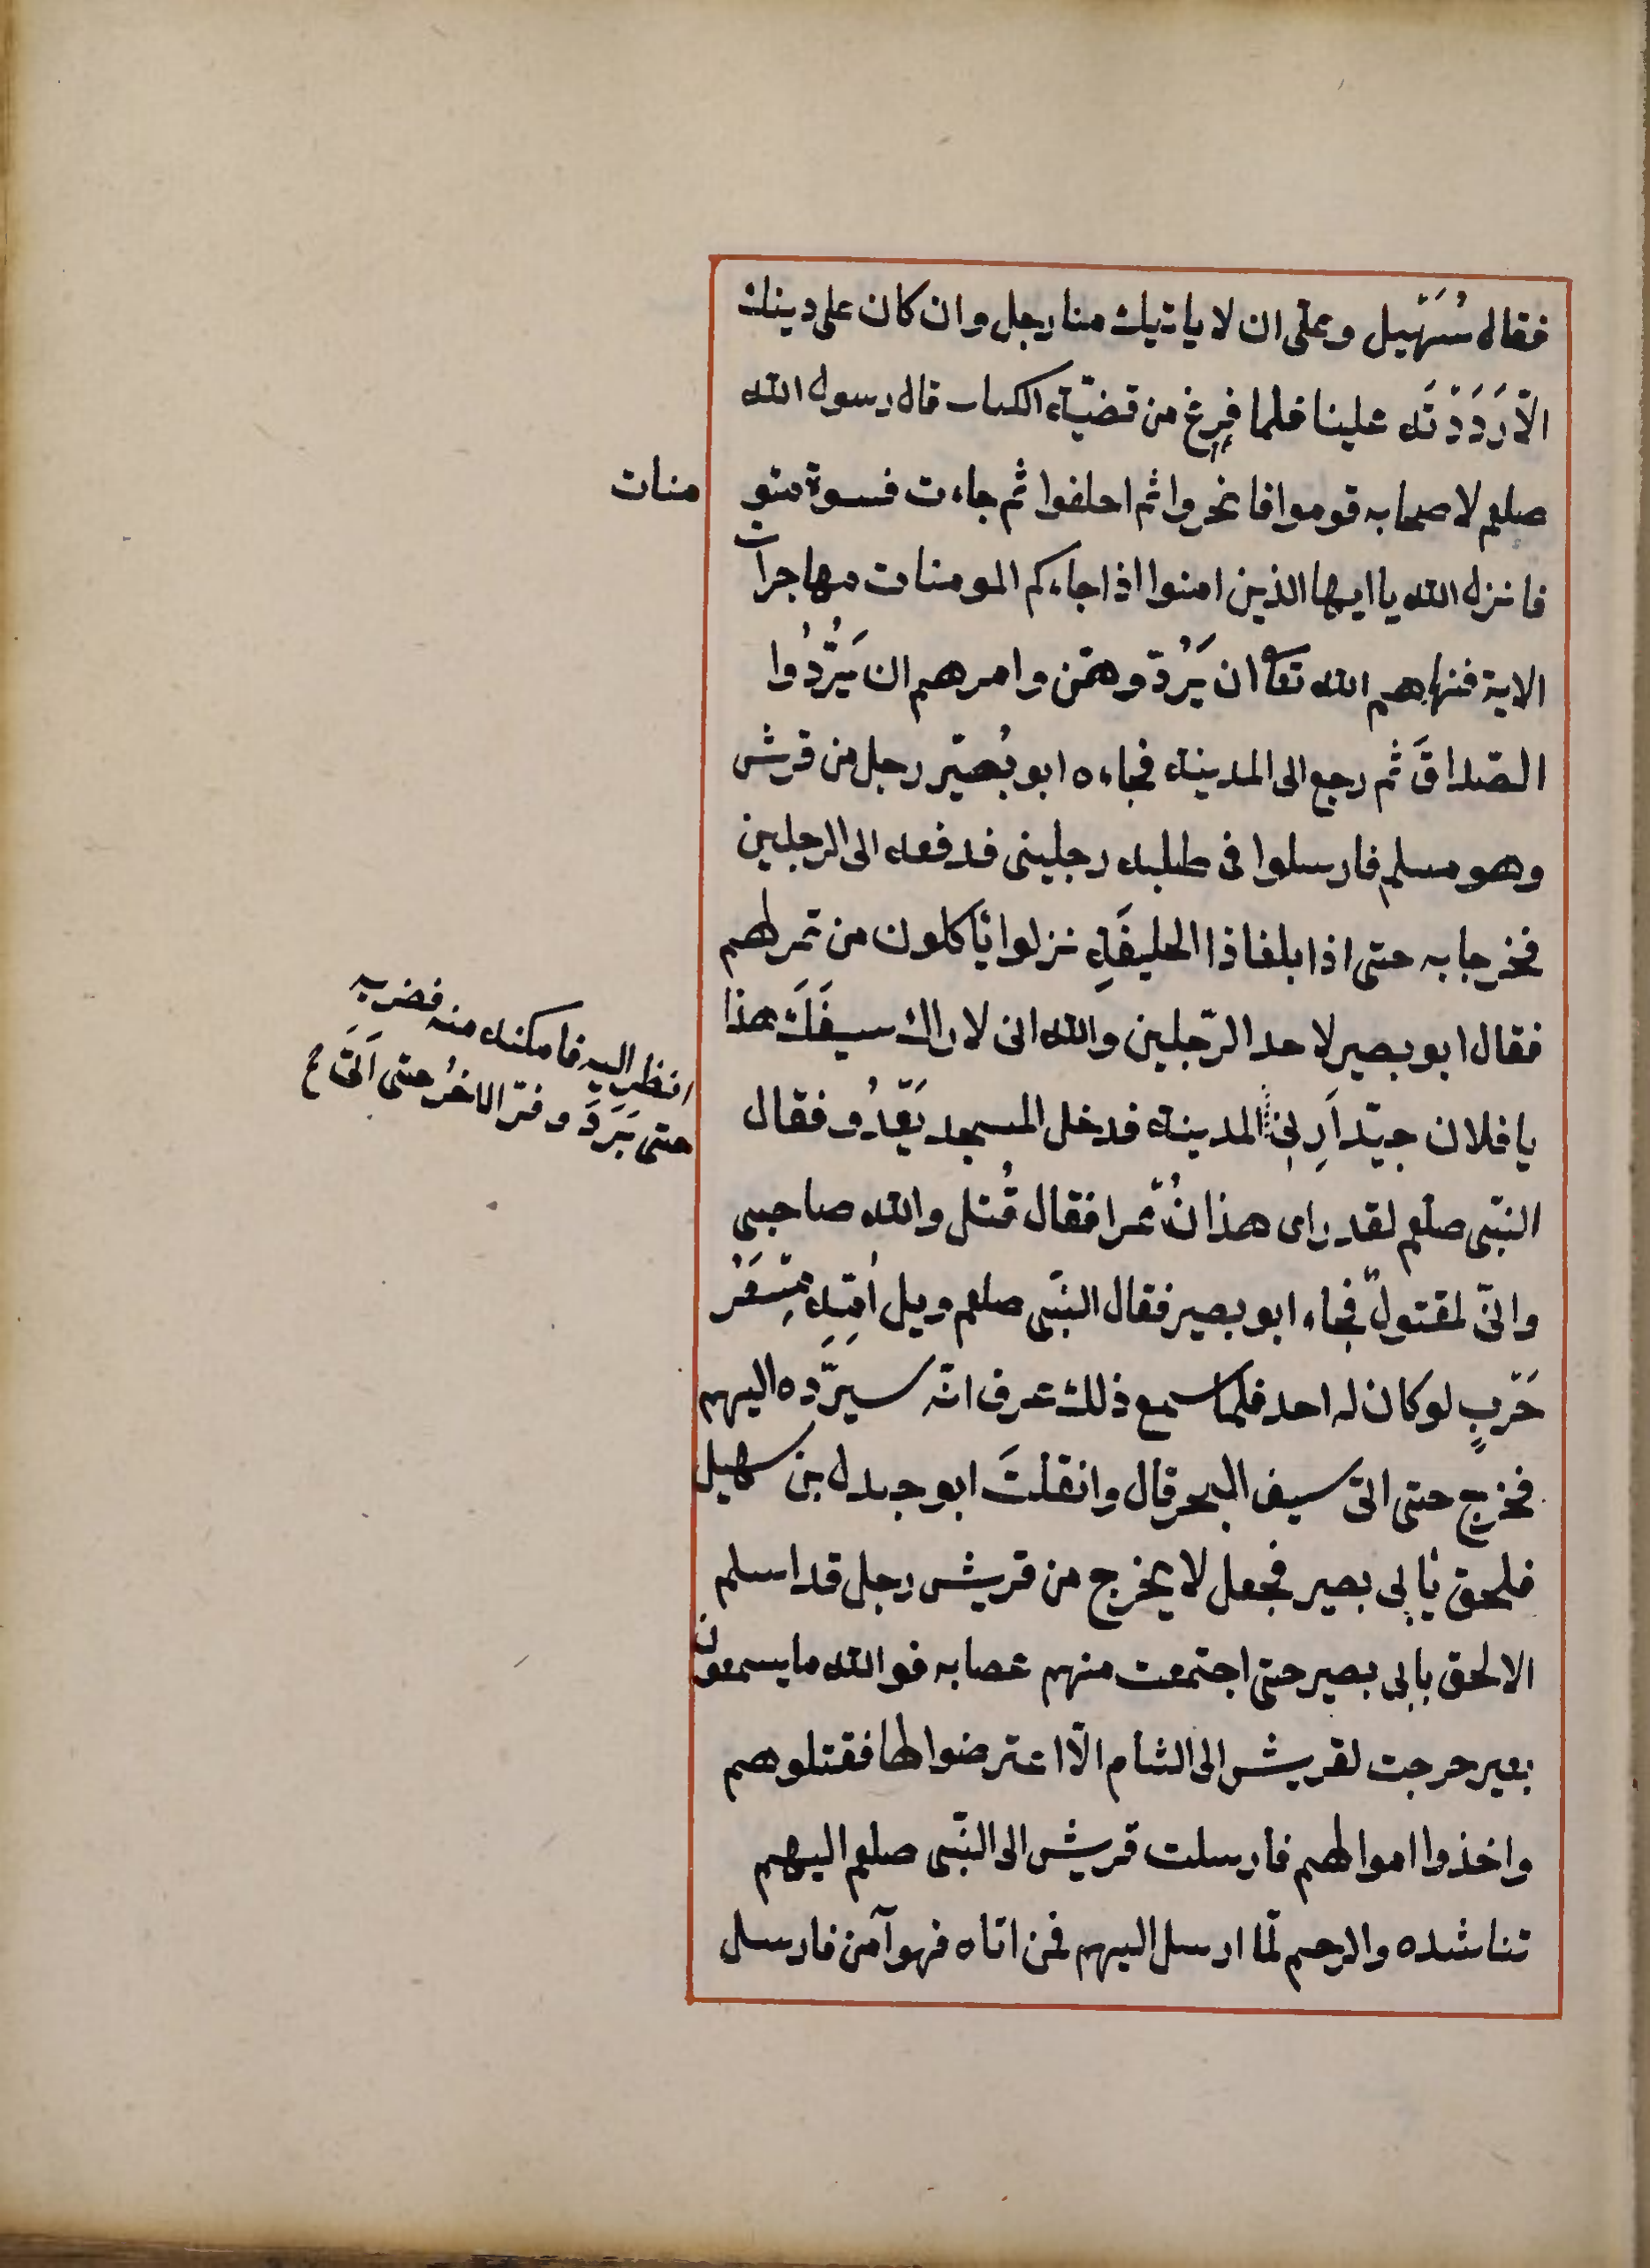 فقال سُهَيل وعلى ان لا ياتيك منا رجل وان كان على دينك
الّا رَدَدْتَه علينا فلما فرغ من قضيّة الكتاب قال رسول الله
صلعم لاصحابه قوموا فانحروا ثم احلقوا ثم جاءت نسوة مئو
منات
فانزل الله يا ايها الذين امنوا اذا جاءكم المومنات مهاجرات
الاية فنهاهم الله تعا ان يَرُدّوهنّ وامرهم ان يَرُدُّوا
الصّداقَ ثم رجع الى المدينة فجاءه ابو بُصَير رجل من قرش
وهو مسلم فارسلوا في طلبه رجلينى فدفعه الى الرجلين
فخرجا به حتى اذا بلغا ذا الحليفَةِ نزلوا يأكلون من تمر لهم
فقال ابو بصير لاحد الرّجلين والله انى لاراك سيفَكَ هذا
يا فلان جيّدا اَرِنِى المدينة فدخل المسجد يَعْدُو فقال
انظر اليه فامكنه منه فضربه
حتى بَرَدَ وفرّ الاخرُ حتى اَتَى
النبّى صلعم لقد راى هذا ذُعْرا فقال قُتل والله صاحبى
وانّى لمقتولٌ فجاء ابو بصير فقال النبّى صلعم ويل اُمِّهِ مِسْعَرُ
حَرْبٍ لو كان له احد فلمّا سمع ذلك عرف انّه سيرّده اليهم
فخرج حتى اتى سيف البحر قال وانفلتَ ابو جندل بن سهيل
فلحق بأبى بصير فجعل لا يخرج من قريش رجل قد اسلم
الا لحق بابى بصير حتى اجتمعت منهم عصابه فوالله ما يسمعون
بعير حرجت لقريش الى الشام الّا اعترضوا لها فقتلوهم
واخذوا اموالهم فارسلت قريش الى النبّى صلعم اليهم
تناشده والرحم لمّا ارسل اليهم فمن اتاه فهو آمن فارسل